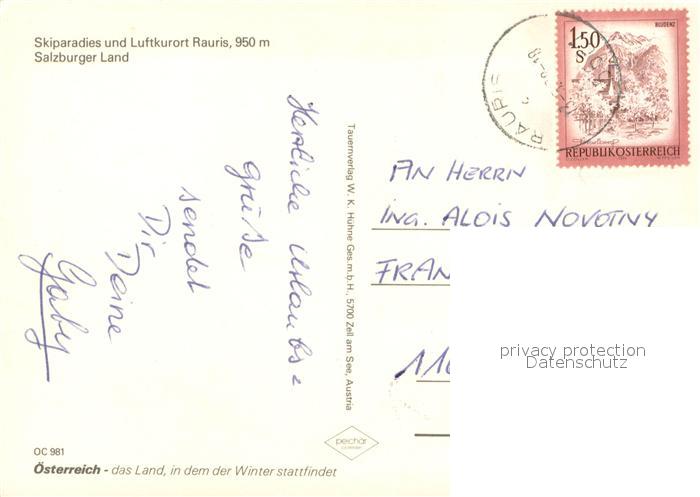 Skiparadies und Luftkurort Rauris, 950 m
Salzburger Land
Herzliche Urlaubs=
grüße
sendet
Dir
Deine
Gaby
OC 981
Österreich - das Land, in dem der Winter stattfindet
Tauernverlag W. K. Hühne Ges.m.b.H., 5700 Zell am See, Austria
peichär
RAURIS
BLUDENZ
1.50
S
REPUBLIK ÖSTERREICH
AN HERRN
ING. ALOIS NOVOTNY
FRAN
110
privacy protection
Datenschutz